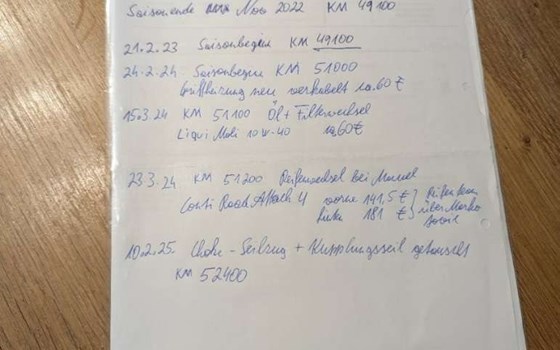 Saisonende Nov 2022 KM 49100
21.2.23 Saisonbeginn KM 49100
24.2.24 Saisonbeginn KM 51000
Griffheizung neu verkabelt ca. 60 €
15.3.24 KM 51100 Öl + Filterwechsel
Liqui Moli 10W-40 ca. 60 €
23.3.24 KM 51200 Reifenwechsel bei Manuel
Conti Road Attack 4 vorne 141,5 €
hinten 181 €
Reifen
über Marko
10.2.25 Choke-Seilzug + Kupplungsseil getauscht
KM 52400